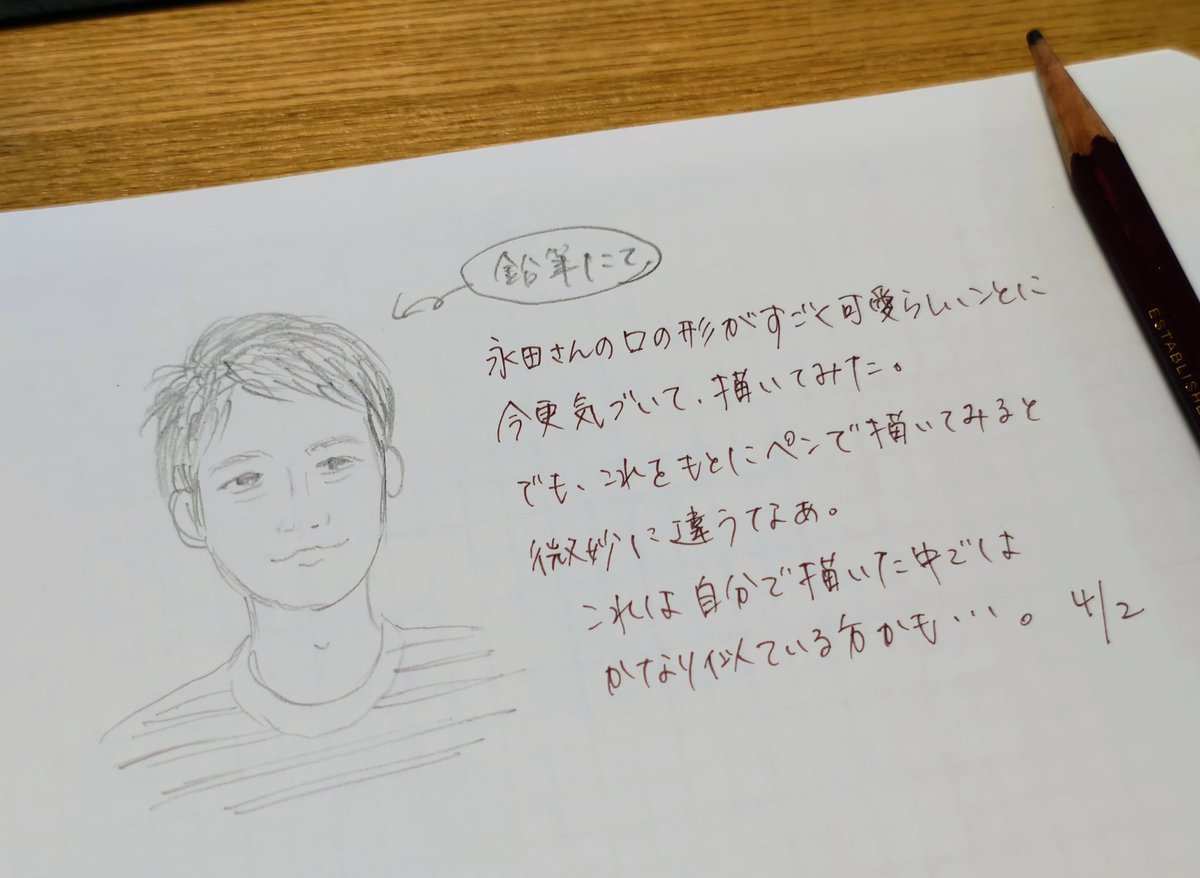 鉛筆にて
永田さんの口の形がすごく可愛らしいことに
今更気づいて、描いてみた。
でも、これをもとにペンで描いてみると
微妙に違うなぁ。
これは自分で描いた中では
かなり似ている方かも…。 4/2
ESTABLISHE